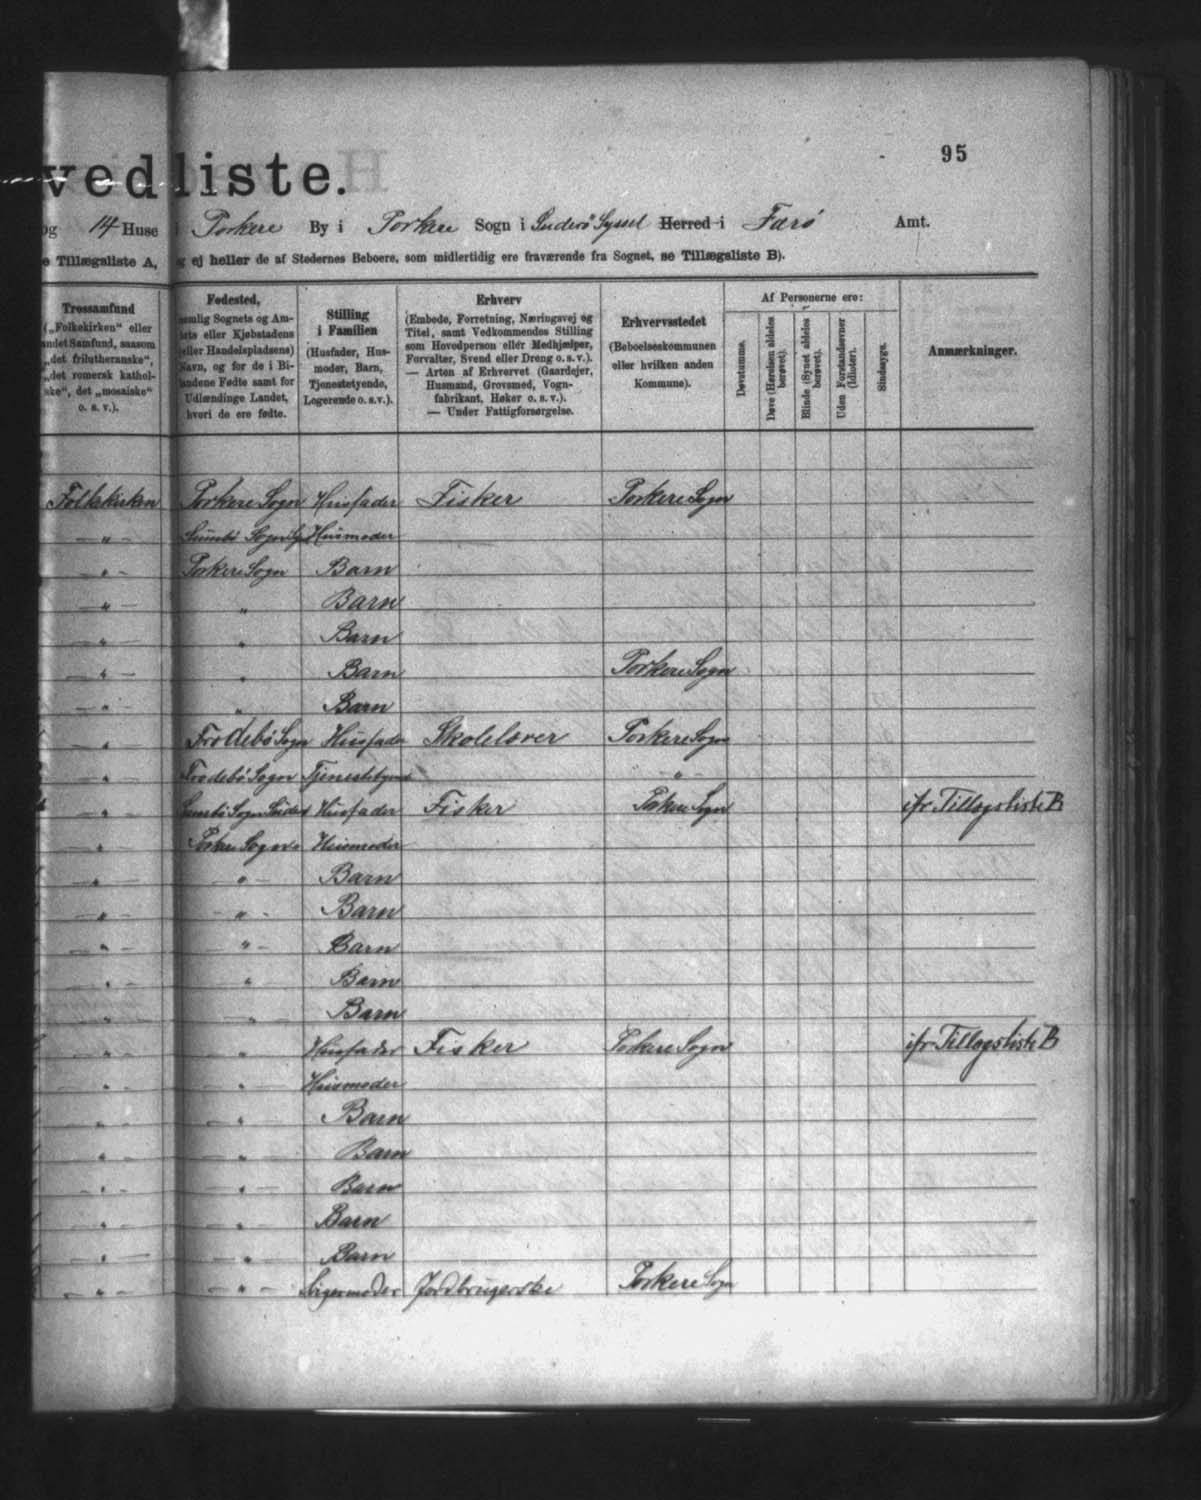 95
vedliste.
og 14 Huse i Porkere By i Porkere Sogn i Suderö Syssel Herred i Færö Amt.
e Tillægsliste A, og ej heller de af Stedernes Beboere, som midlertidig ere fraværende fra Sognet, se Tillægsliste B).
Trossamfund
(„Folkekirken“ eller
andet Samfund, saasom
„det frilutheranske“,
„det romersk kathol-
ske“, det „mosaiske“
o. s. v.).
Fødested,
nemlig Sognets og Am-
tets eller Kjøbstadens
(eller Handelspladsens)
Navn, og for de i Bi-
landene Fødte samt for
Udlændinge Landet,
hvori de ere fødte.
Stilling
i Familien
(Husfader, Hus-
moder, Barn,
Tjenestetyende,
Logerende o. s. v.).
Erhverv
(Embede, Forretning, Næringsvej og
Titel, samt Vedkommendes Stilling
som Hovedperson eller Medhjælper,
Forvalter, Svend eller Dreng o. s. v.).
— Arten af Erhvervet (Gaardejer,
Husmand, Grovsmed, Vogn-
fabrikant, Høker o. s. v.).
— Under Fattigforsørgelse.
Erhvervsstedet
(Beboelseskommunen
eller hvilken anden
Kommune).
Af Personerne ere:
Døvstumme.
Døve (Hørelsen aldeles berøvet).
Blinde (Synet aldeles berøvet).
Uden Forstandsevner (Idioter).
Sindssyge.
Anmærkninger.
Folkekirken Porkere Sogn Husfader Fisker Porkere Sogn
— „ — Sumbö Sogn Husmoder
— „ — Porkere Sogn Barn
— „ — „ Barn
— „ — „ Barn
— „ — „ Barn Porkere Sogn
— „ — „ Barn
„ — Frodebö Sogn Husfader Skolelærer Porkere Sogn
„ — Frodebö Sogn Tjenestetyende — „ —
„ — Sumbö Sogn Husfader Fisker Porkere Sogn ifr Tillægsliste B
„ — Porkere Sogn Husmoder
— „ — — „ — Barn
— „ — — „ — Barn
— „ — — „ — Barn
— „ — — „ — Barn
— „ — — „ — Barn
— „ — — „ — Husfader Fisker Porkere Sogn ifr Tillægsliste B
— „ — — „ — Husmoder
— „ — — „ — Barn
— „ — — „ — Barn
— „ — — „ — Barn
— „ — — „ — Barn
— „ — — „ — Barn
— „ — — „ — Svigermoder Jordbrugerske Porkere Sogn